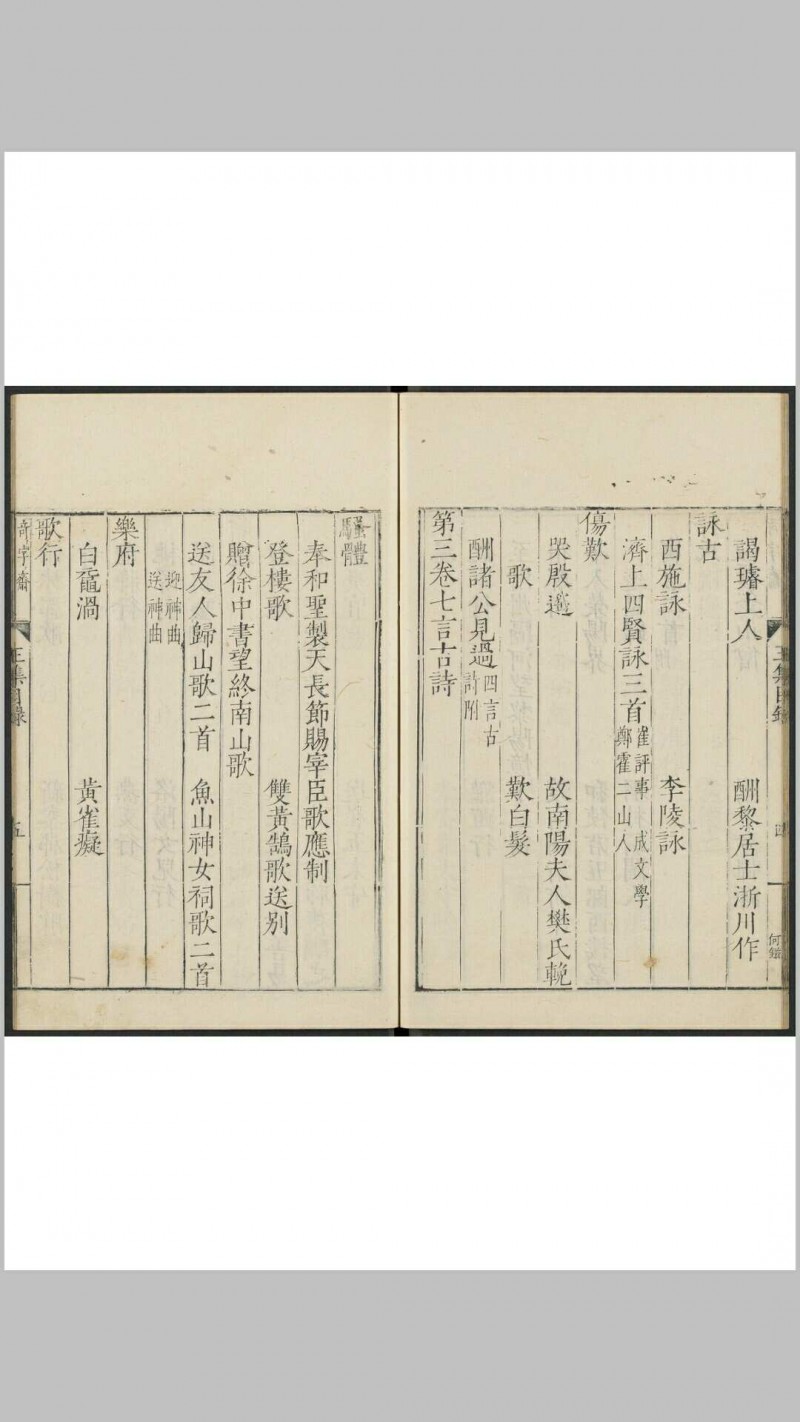 謁璿上人　酬黎居士淅川作
詠古
西施詠　李陵詠
濟上四賢詠三首 崔評事 成文學 鄭霍二山人
傷歎
哭殷遥　故南陽夫人樊氏輓
歌　歎白髮
酬諸公見過 四言古詩附
第三卷七言古詩
騷體
奉和聖製天長節賜宰臣歌應制
登樓歌　雙黃鵠歌送别
贈徐中書望終南山歌
送友人歸山歌二首　魚山神女祠歌二首
迎神曲 送神曲
樂府
白黿渦　黃雀癡
歌行
奇字齋　王集目錄　五
王集目錄　四　何鈿